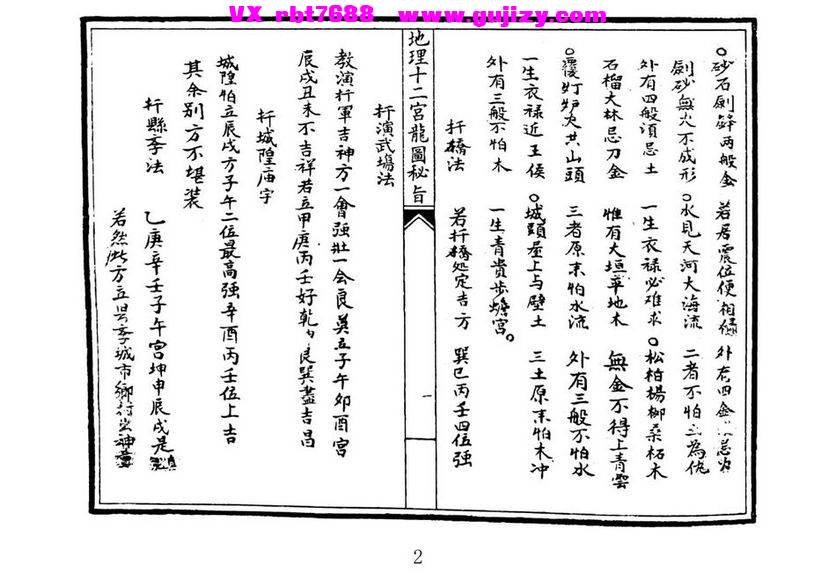 VX rbt7688 www.gujizy.com
○砂石劍鋒两般金 若居震位便相 外有四金 忌火
劍砂無火不成形 ○水見天河大海流 二者不怕 為仇
外有四般須忌土 一生衣禄必难求 ○松柏楊柳桑柘木
石榴大林忌刀金 惟有大垣草地木 無金不得上青雲
○覆灯炉火共山頭 三者原来怕水流 外有三般不怕水
一生衣禄近王侯 ○城頭屋上与壁土 三土原来怕木冲
外有三般不怕木 一生青貴步蟾宮。
扦橋法 若扦橋処定吉方 巽巳丙壬四位强
地理十二宮龍圖秘旨
一
扦演武塲法
教演扦軍吉神方一會强壮一会良莫立子午卯酉宮
辰戌丑未不吉祥若立甲庚丙壬好乾 艮巽盡吉昌
扦城隍庙字
城隍怕立辰戌方子午二位最高强辛酉丙壬位上吉
其余别方不堪装
扦縣李法 乙庚辛壬子午宮坤申辰戌是
若然此方立 李城市鄉村 神
2